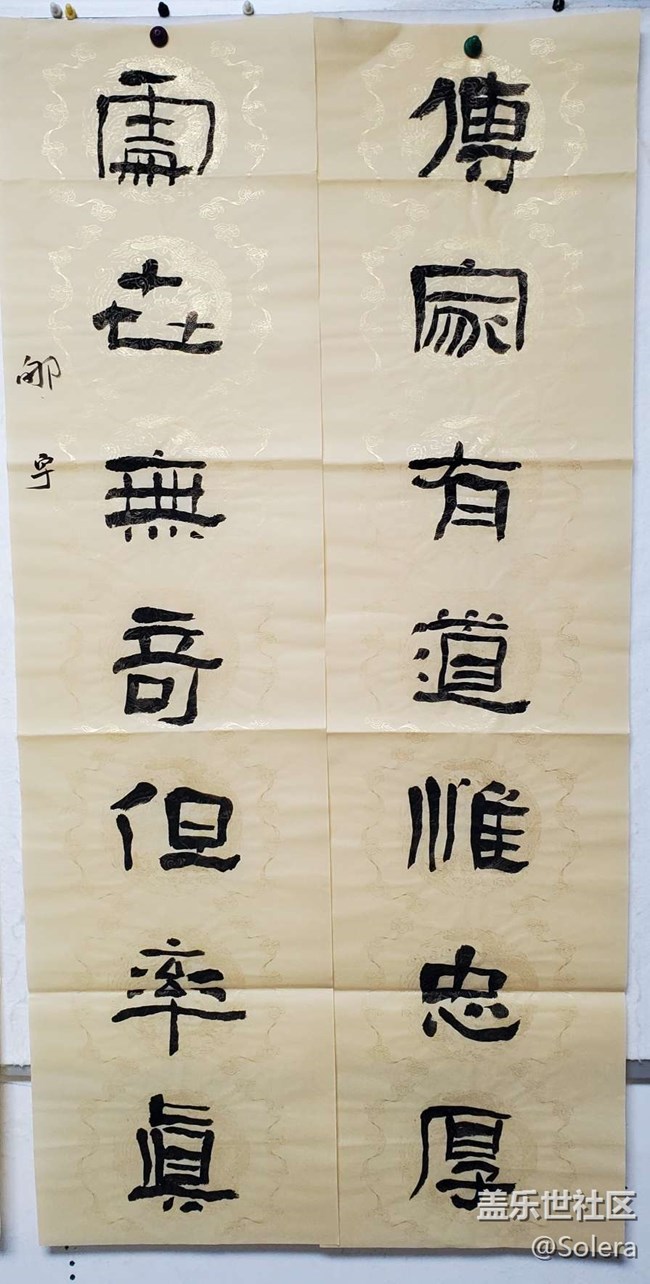 傳家有道惟忠厚
處世無奇但率眞
盖乐世社区
@Solera